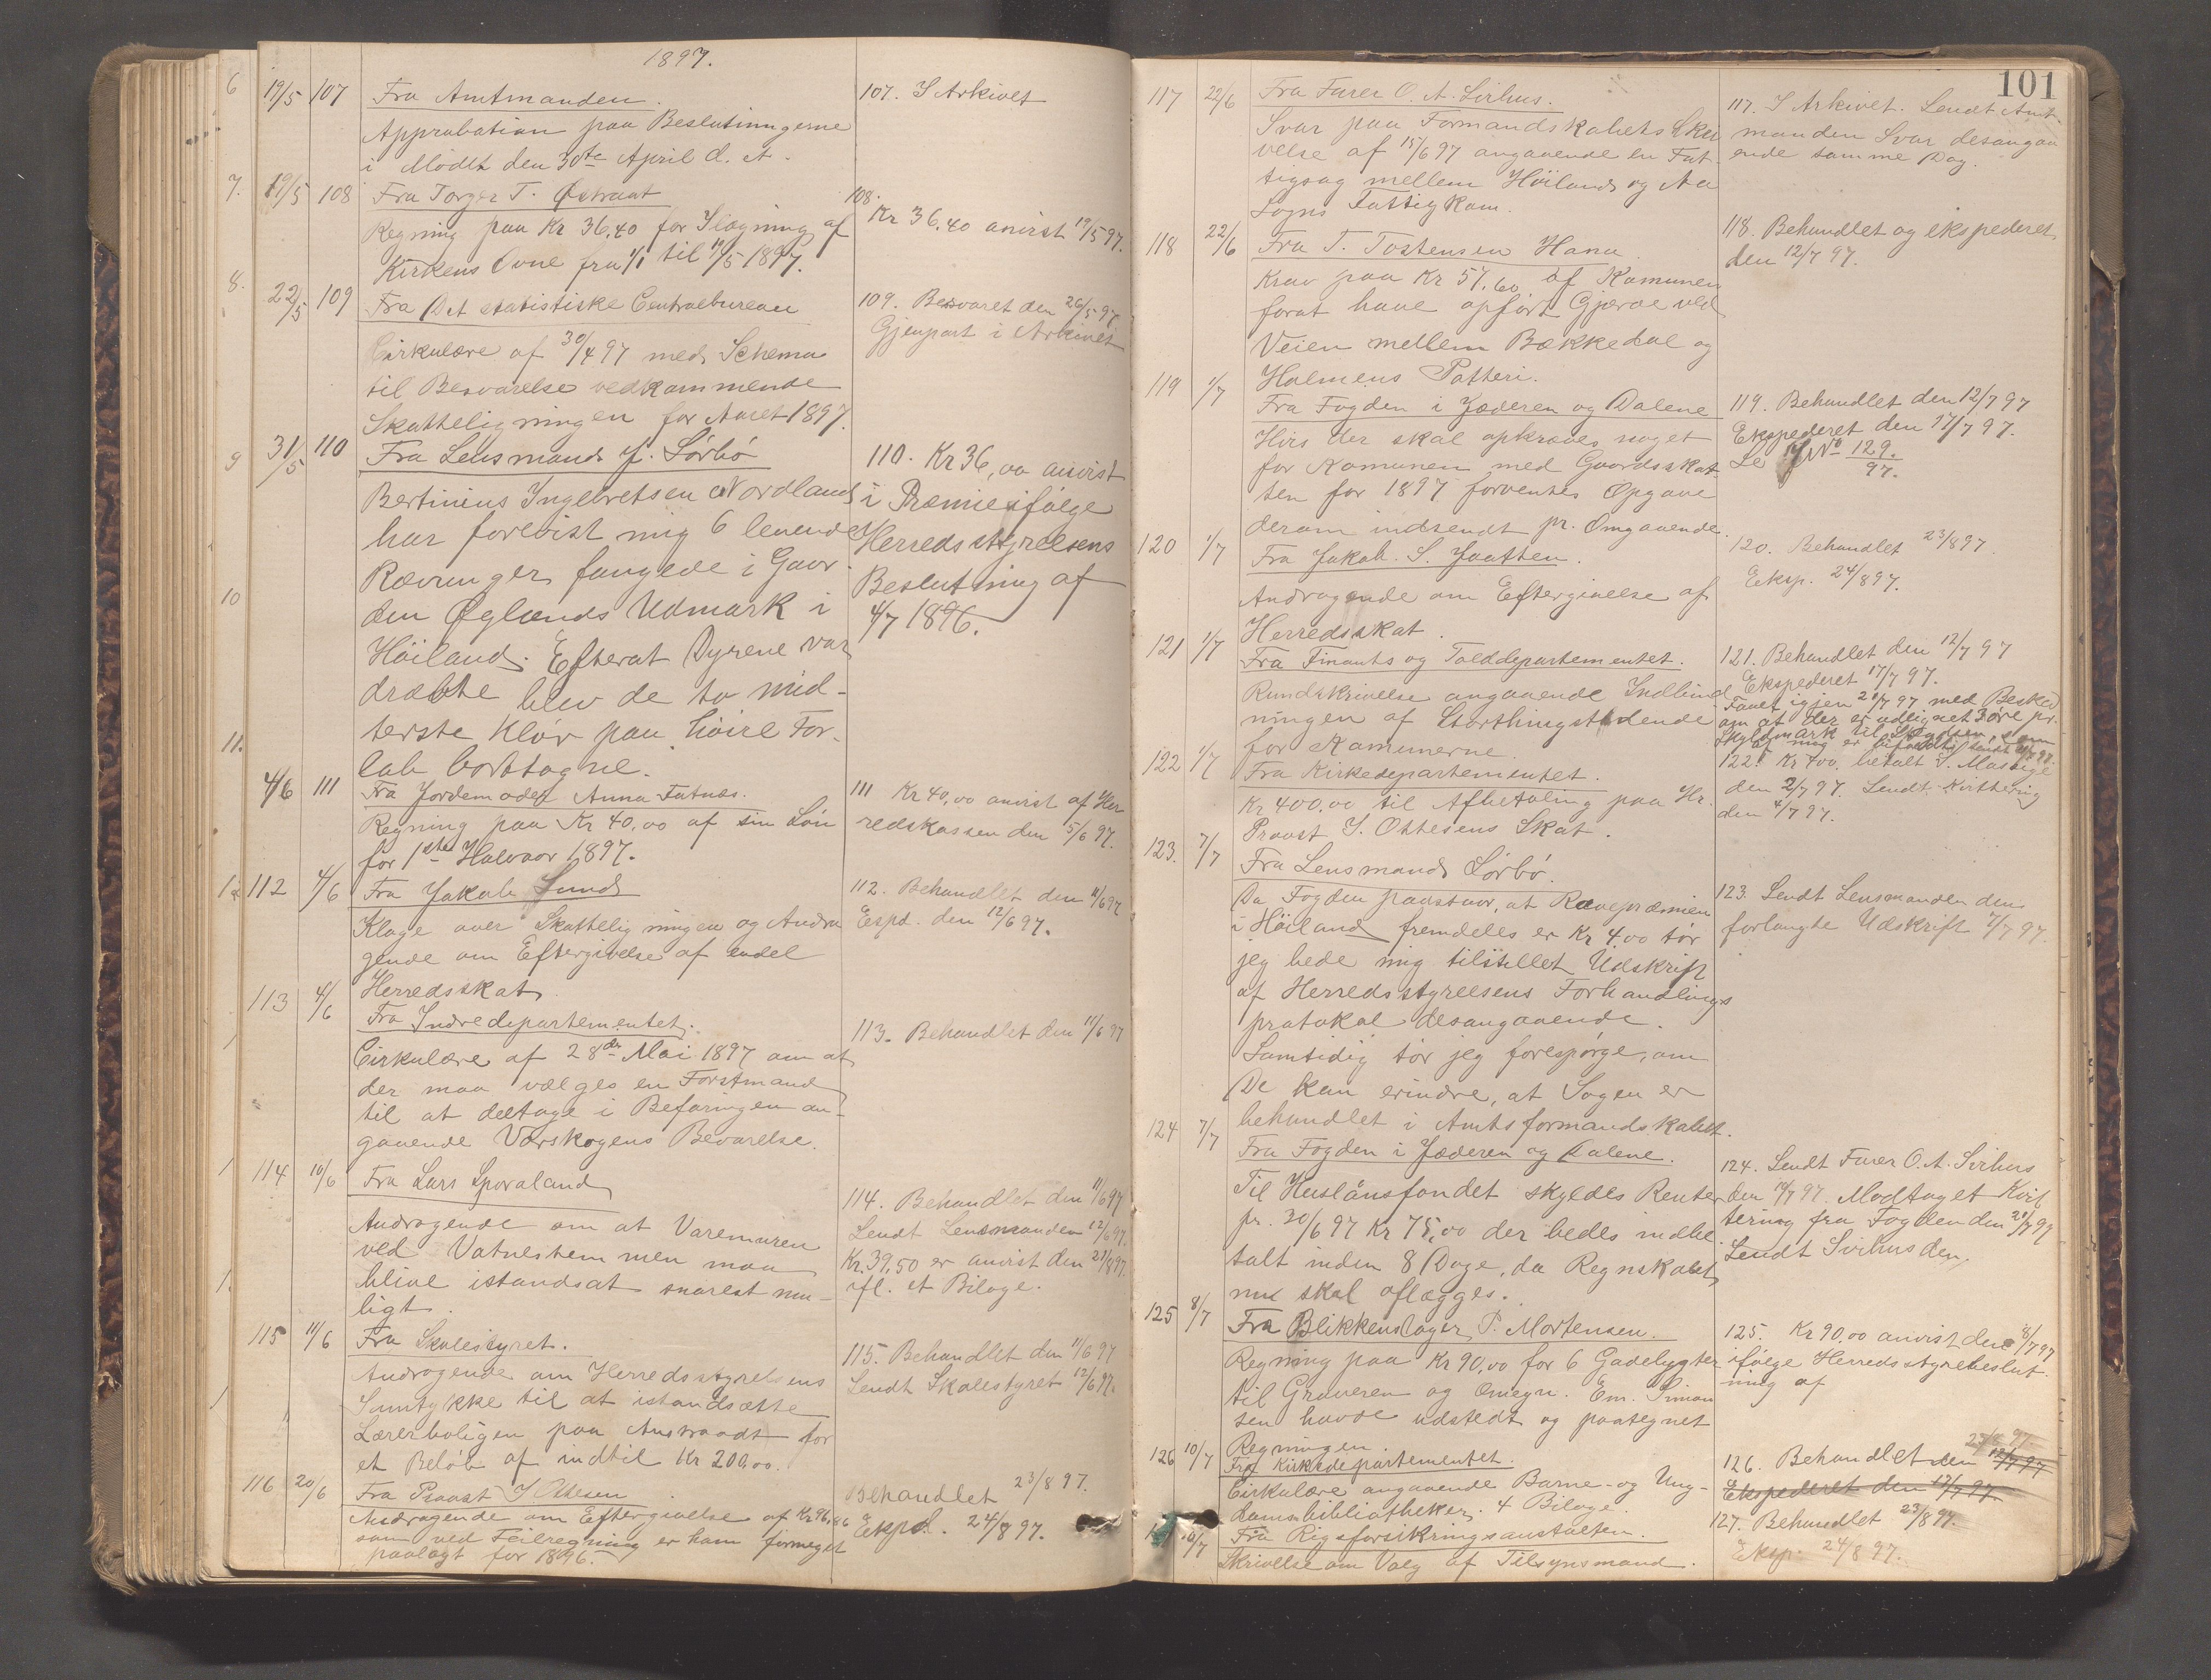 1897.
19/5 107 Fra Amtmanden.
Approbation paa Beslutningerne
i Mödet den 30te April d. A.
107. I Arkivet
19/5 108 Fra Torger T. Østraat
Regning paa Kr 36,40 for Ilægning af
Kirkens Ovne fra 1/1 til 19/5 1897.
108.
Kr 36,40 anvist 19/5 97.
22/5 109 Fra Det statistiske Centralbureau
Cirkulære af 30/4 97 med Schema
til Besvarelse vedkommende
Skatteligningen for Aaret 1897.
109. Besvaret den 26/5 97
Gjenpart i Arkivet
31/5 110 Fra Lensmand J. Sörbö
Bertinius Ingebretsen Nordland
har forevist mig 6 levende
Rævunger fangede i Gaar-
den Øglænds Udmark i
Höiland. Efterat Dyrene var
dræbte blev de to mid-
terste Klör paa höire For-
lab borttagne.
110. Kr 36,00 anvist
i Præmie ifölge
Herredsstyrelsens
Beslutning af
4/7 1896.
4/6 111 Fra Jordemoder Anna Fatnæs.
Regning paa Kr 40,00 af sin Lön
for 1ste Halvaar 1897.
111 Kr 40,00 anvist af Her
redskassen den 5/6 97.
112 4/6 Fra Jakob Lund
Klage over Skatteligningen og Andra
gende om Eftergivelse af endel
Herredsskat
112. Behandlet den 11/6 97
Espd. den 12/6 97.
113 4/6 Fra Indredepartementet.
Cirkulære af 28de Mai 1897 om at
der maa vælges en Forstmand
til at deltage i Befaringen an-
gaaende Værskogens Bevarelse.
113. Behandlet den 11/6 97
114 10/6 Fra Lars Sporaland
Andragende om at Varemuren
ved Vatnestemmen maa
blive istandsat snarest mu-
ligt.
114. Behandlet den 11/6 97
Sendt Lensmanden 12/6 97.
Kr. 39,50 er anvist den 21/8 97.
ifl. et Bilage.
115 11/6 Fra Skolestyret.
Andragende om Herredsstyrelsens
Samtykke til at istandsætte
Lærerboligen paa Austraadt for
et Belöb af indtil Kr 200,00.
115. Behandlet den 11/6 97
Sendt Skolestyret 12/6 97.
116 20/6 Fra Provst J Ottesen
Andragende om Eftergivelse af Kr 96,86
som ved Feilregning er ham formeget
paalagt for 1896.
Behandlet 23/8 97.
Ekspd. 24/8 97.
101
117 22/6 Fra Furer O. A. Sirhus.
Svar paa Formandskabets Skri
velse af 15/6 97 angaaende en Fat
tigsag mellem Höiland og Aa
Sogns Fattigkom.
117. I Arkivet. Sendt Amt-
manden Svar desangaa
ende samme Dag.
118 22/6 Fra T. Tostensen Hana
Krav paa Kr 57,60 af Komunen
forat have opfört Gjærde ved
Veien mellem Bækkedal og
Holmens Potteri.
118. Behandlet og ekspederet
den 12/7 97.
119 1/7 Fra Fogden i Jæderen og Dalene
Hvis der skal opkræves noget
for Komunen med Gaardsskat
ten for 1897 forventes Opgave
derom indsendt pr. Omgaaende.
119. Behandlet den 12/7 97
Ekspederet den 17/7 97.
Se JNo 129.
97.
120 1/7 Fra Jakob. S. Jaatten.
Andragende om Eftergivelse af
Herredsskat.
120. Behandlet 23/8 97.
Eksp. 24/8 97.
121 1/7 Fra Finants og Tolddepartementet.
Rundskrivelse angaaende Indbind
ningen af Storthingstidende
for Komunerne.
121. Behandlet den 12/7 97
Ekspederet 17/7 97.
Faaet igjen 21/7 97 med Besked
om at der er udlignet 3 öre pr.
Skyldmark til
122 1/7 Fra Kirkedepartementet.
Kr 400,00 til Afbetaling paa Hr.
Provst J. Ottesens Skat.
122. Kr 400. betalt
den 2/7 97. Sendt Kvittering
den 4/7 97.
123. 7/7 Fra Lensmand Sörbö.
Da Fogden paastaar, at Rævepræmien
i Höiland fremdeles er Kr 4,00 tör
jeg bede mig tilstillet Udskrift
af Herredsstyrelsens Forhandlings
protokol desangaaende.
Samtidig tör jeg forespörge, om
De kan erindre, at Sagen er
behandlet i Amtsformandskabet.
123. Sendt Lensmanden den
forlangte Udskrift 7/7 97.
124 7/7 Fra Fogden i Jæderen og Dalene.
Til Huslånsfondet skyldes Renter
pr. 30/6 97 Kr 75,00 der bedes indbe
talt inden 8 Dage, da Regnskabet
nu skal aflægges.
124. Sendt Furer O. A. Sirhus
den 14/7 97. Modtaget Kvit
tering fra Fogden den 21/7 97
Sendt Sirhus den
125 8/7 Fra Blikkenslager P. Mortensen.
Regning paa Kr 90,00 for 6 Gadelygter
til Graveren og Omegn. Em. Simon
sen havde udstedt og paategnet
Regningen.
125. Kr 90,00 anvist den 8/7 97
ifölge Herredsstyrebeslut
ning af
126 10/7 Fra Kirkedepartementet.
Cirkulære angaaende Barne- og Ung-
domsbibliotheker. 4 Bilage.
126. Behandlet den 12/7 97
Ekspederet den 17/7 97.
10/7 Fra Rigsforsikringsanstalten.
Skrivelse om Valg af Tilsynsmand.
127. Behandlet 23/8 97.
Eksp. 24/8 97.